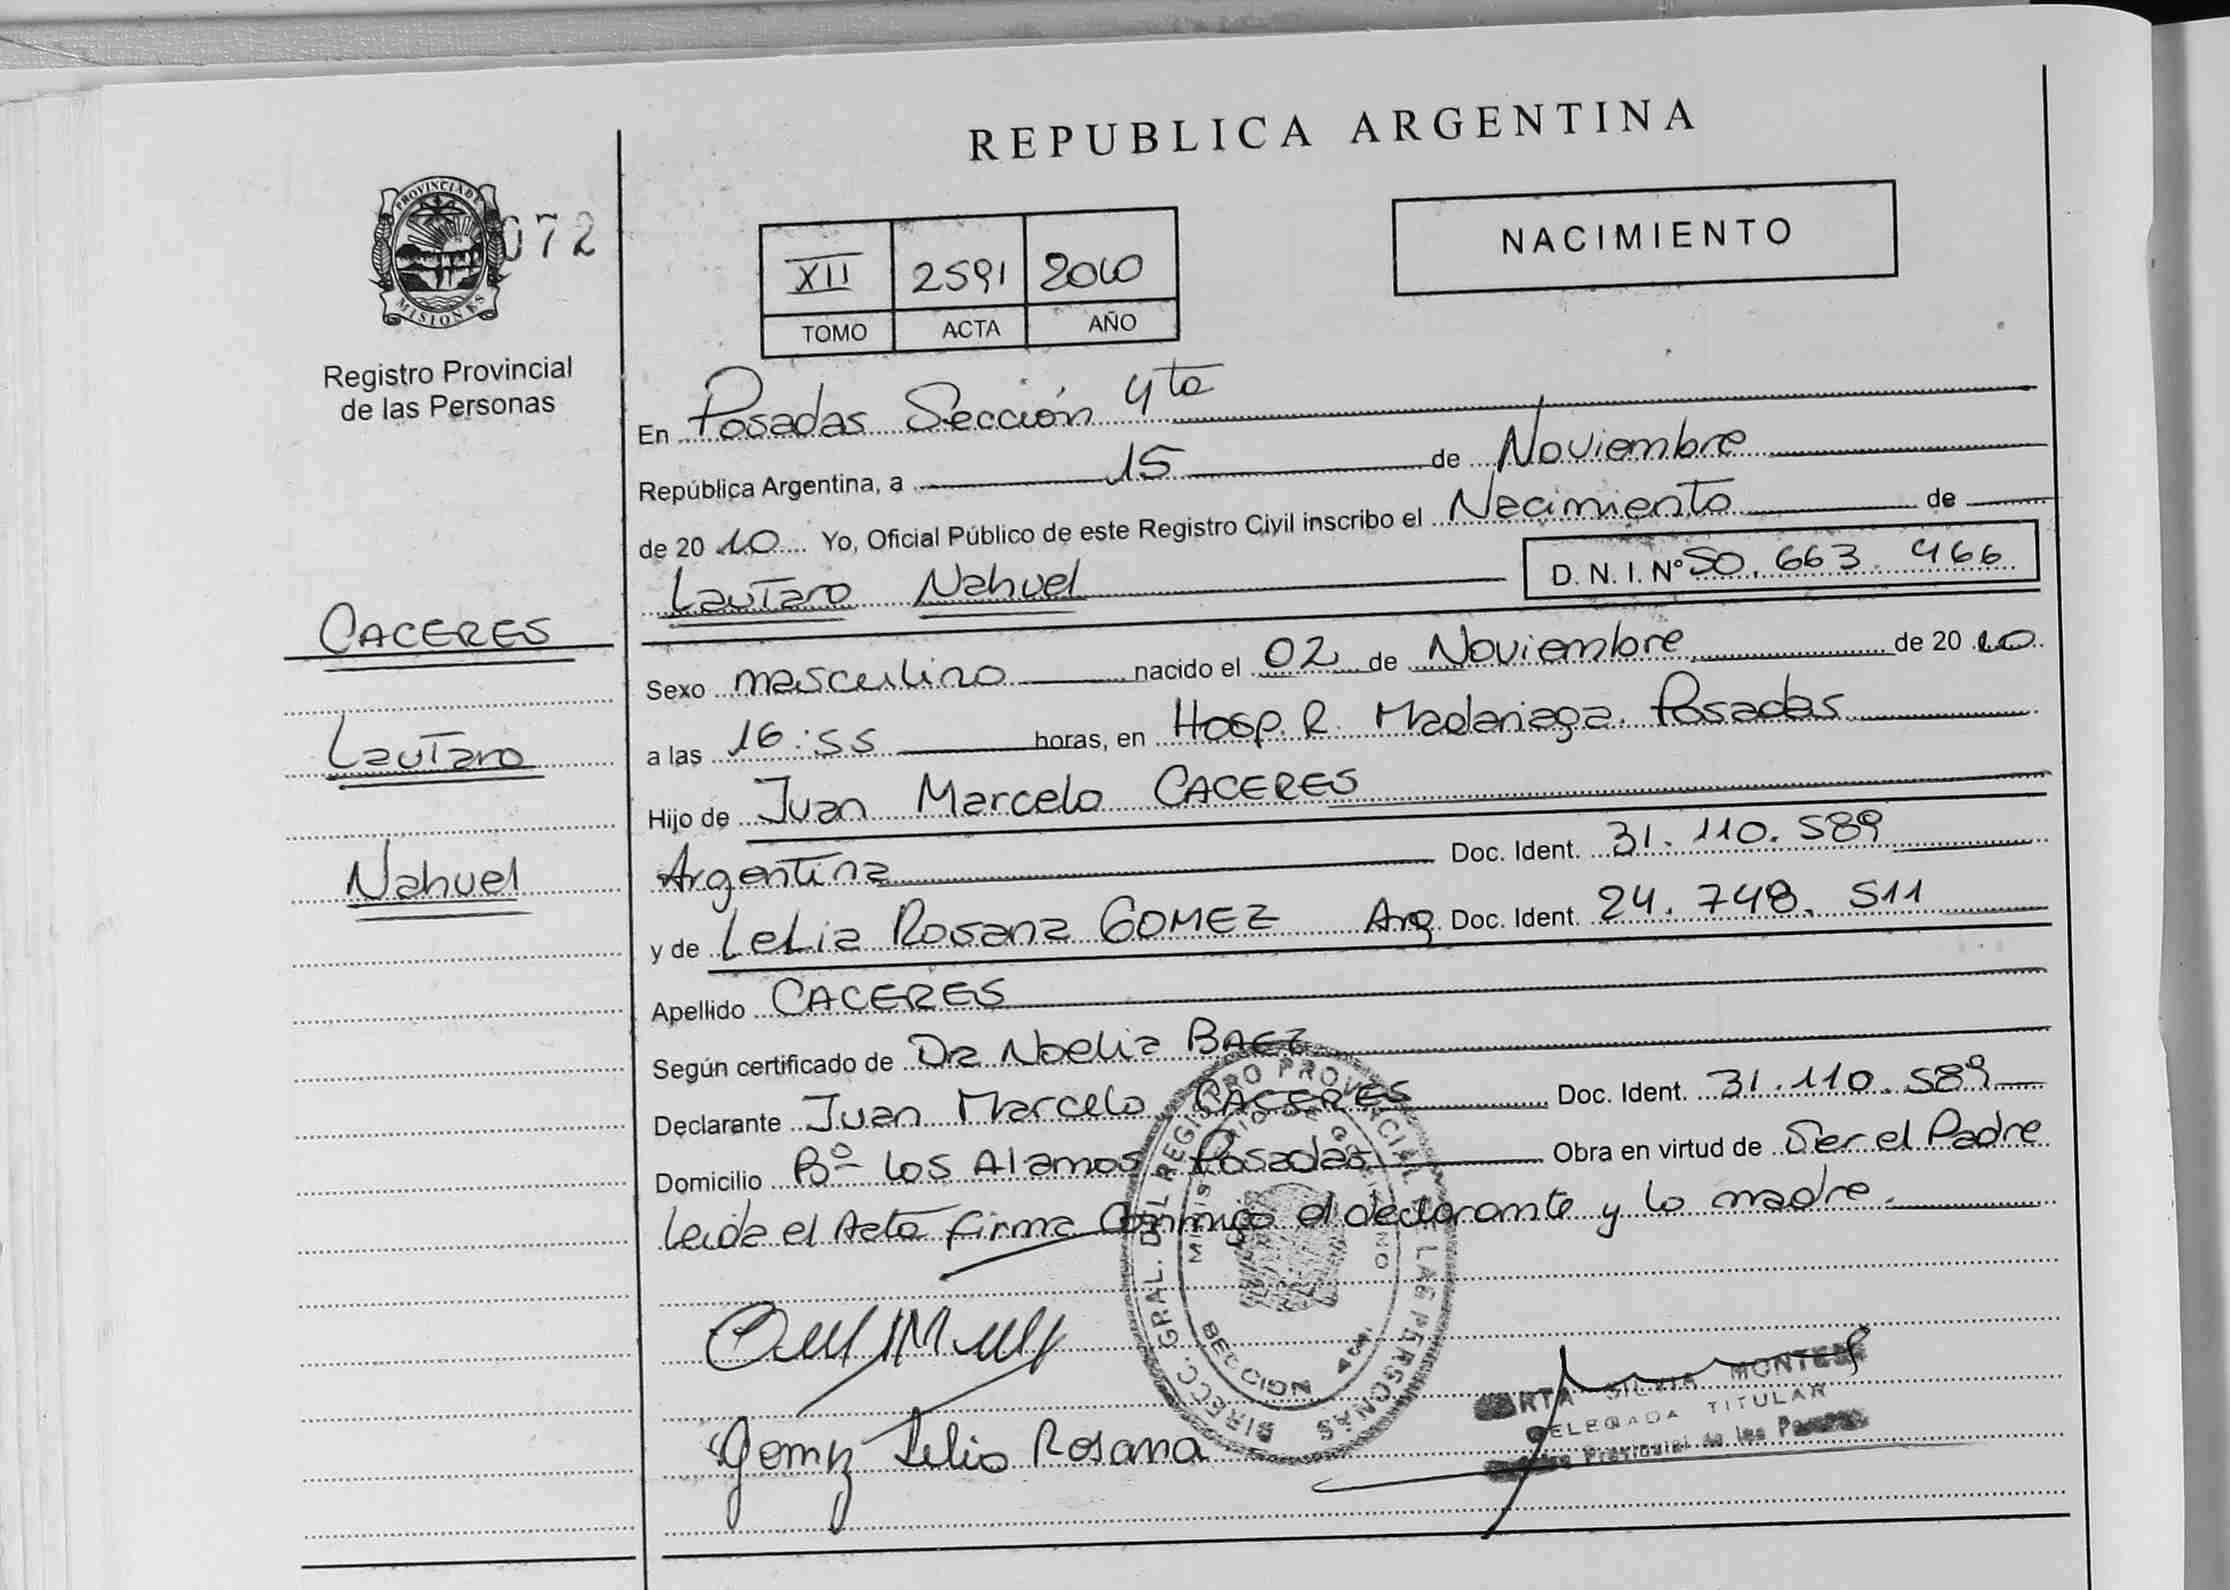 REPUBLICA ARGENTINA
PROVINCIA DE
MISIONES
072
Registro Provincial
de las Personas
XII 2591 2010
TOMO ACTA AÑO
NACIMIENTO
En Posadas Sección 4ta
República Argentina, a 15 de Noviembre
de 2010 Yo, Oficial Público de este Registro Civil inscribo el Nacimiento de
Lautaro Nahuel D. N. I. Nº 50.663.466
CACERES
Lautaro
Nahuel
Sexo masculino nacido el 02 de Noviembre de 2010
a las 16:55 horas, en Hosp. R. Madariaga. Posadas
Hijo de Juan Marcelo CACERES
Argentina Doc. Ident. 31.110.589
y de Lelia Rosana GOMEZ Arg. Doc. Ident. 24.748.511
Apellido CACERES
Según certificado de Dra Noelia BAEZ
Declarante Juan Marcelo CACERES Doc. Ident. 31.110.589
Domicilio Bº Los Alamos Posadas Obra en virtud de Ser el Padre
Leida el Acta firma Conmigo el declarante y la madre.
DIRECC. GRAL. DEL REGISTRO PROVINCIAL DE LAS PERSONAS
MINISTERIO DE GOBIERNO
SECCION
Gomez Lelia Rosana
SILVIA MONTES
DELEGADA TITULAR
Provincial de las Personas